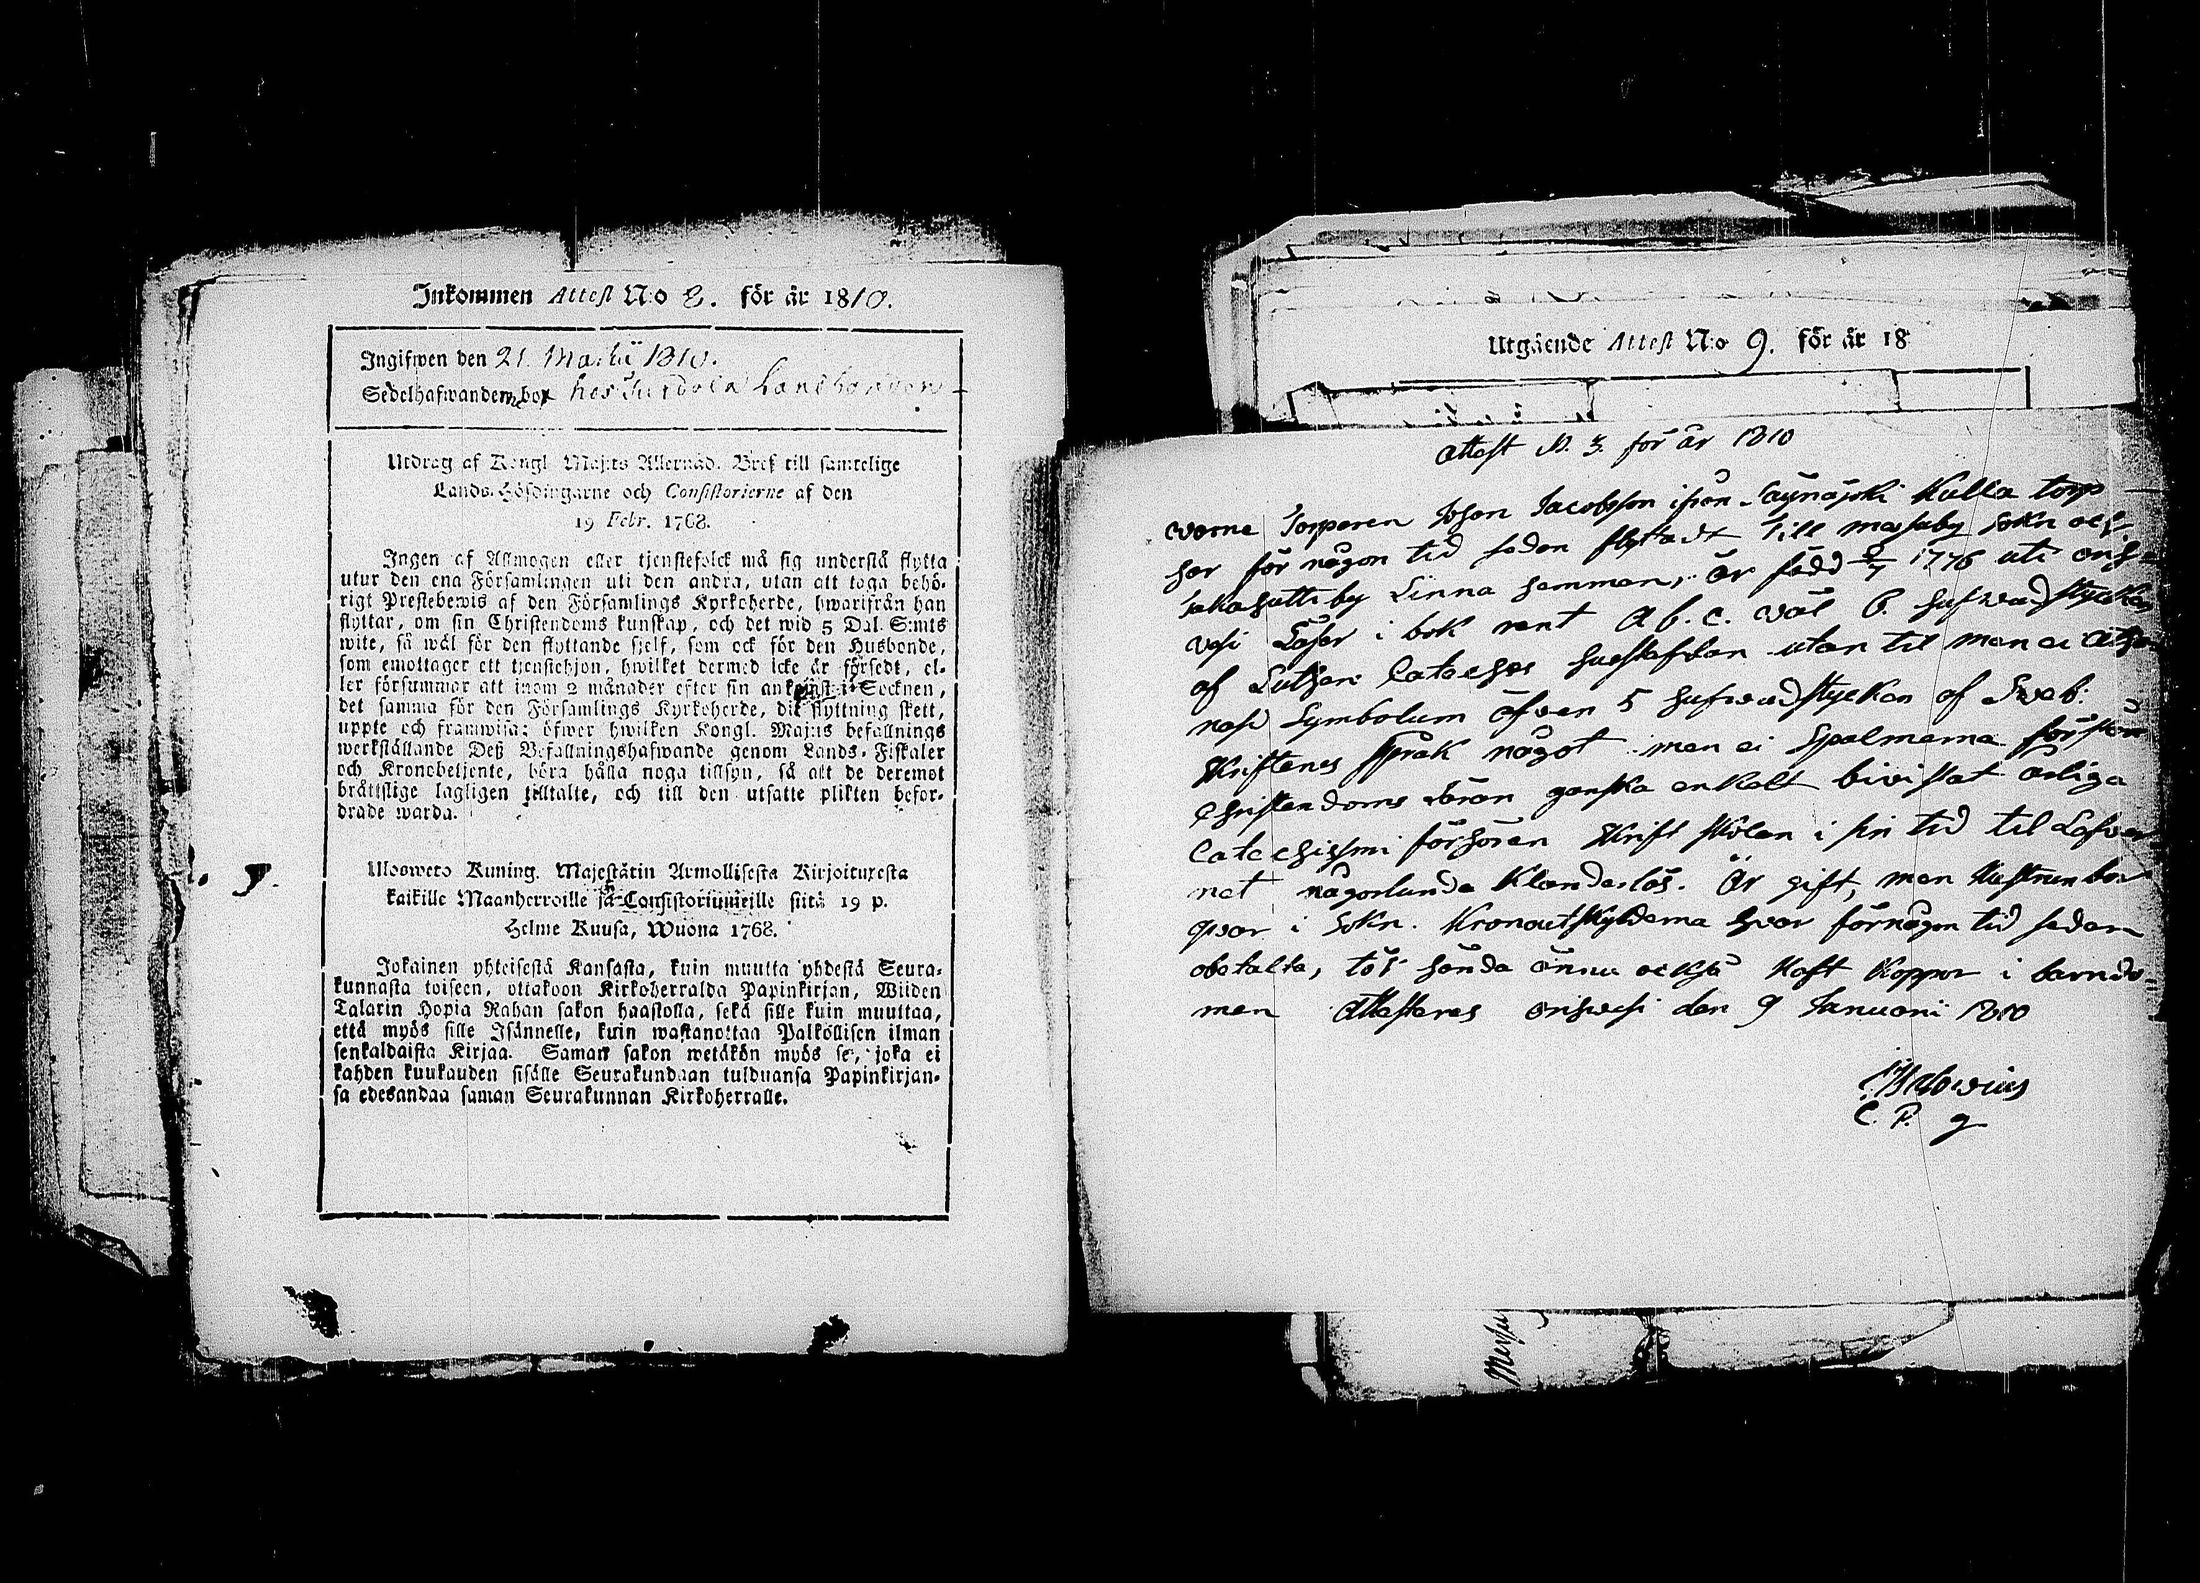 Inkommen Attest N:o 2. för år 1810.
Ingifwen den 21. Martii 1810.
Sedelhafwanden bor hos Landbonden
Utdrag af Kongl Maj:ts Allernåd. Bref till samtelige
Lands-Höfdingarne och Consistorierne af den
19 Febr. 1768.
Ingen af Allmogen eller tjenstefolck må sig understå flytta
utur den ena Församlingen uti den andra, utan att taga behö-
rigt Prestebewis af den Församlings Kyrkoherde, hwarifrån han
flyttar, om sin Christendoms kunskap, och det wid 5 Dal. S:mts
wite, så wäl för den flyttande sjelf, som ock för den Husbonde,
som emottager ett tjenstehjon, hwilket dermed icke är försedt, el-
ler försummar att inom 2 månader efter sin ankomst i Socknen,
det samma för den Församlings Kyrkoherde, dit flyttning skett,
uppte och framwisa; öfwer hwilken Kongl. Maj:ts befallnings
werkställande Deß Befallningshafwande genom Lands-Fiskaler
och Kronobetjente, böra hålla noga tillsyn, så att de deremot
bråttslige lagligen tilltalte, och till den utsatte plikten befor-
drade warda.
Uloswetto Kuning. Majestätin Armollisesta Kirjoituxesta
kaikille Maanherroille ja Consistoriumeille siitä 19 p.
Helme Kuusa, Wuona 1768.
Jokainen yhteisestä Kansasta, kuin muutta yhdestä Seura-
kunnasta toiseen, ottakoon Kirkoherralda Papinkirjan, Wiiden
Talarin Hopia Rahan sakon haastolla, sekä sille kuin muuttaa,
että myös sille Isännelle, kuin wastanottaa Palkollisen ilman
senkaldaista Kirjaa. Saman sakon wetäkön myös se, joka ei
kahden kuukauden sisälle Seurakundaan tulduansa Papinkirjan-
sa edesandaa saman Seurakunnan Kirkoherralle.
Utgående Attest N:o 9. för år 18
Attest N. 3. för år 1810
Torparen Johan Jacobsson ifrån Kulla torp
har för någon tid sedan flyttadt till Messuby Sokn och
by Linna hemman, är född 1776 uti Orih-
vesi Läser i bok rent A b. c. väl 6. hufvudstycken
af Luthers Cateches hustaflan utan til men ei Atha-
nasii Symbolum äfven 5 hufvudstycken af Sveb:
Skriftenes språk något men ei Psalmerna förstår
Christendoms läran ganska enkelt bivistat årliga
Catechismi förhören Skrift skolan i sin tid til Lefver-
net någorlunda Klanderlös. Är gift, men Hustrun bor
qvar i Sokn. Kronoutskylderna hvar för någon tid sedan
obetalta, tör hända ännu också haft Koppor i barndo-
men Attesteras Orihvesi den 9 Januarii 1810
C. P.